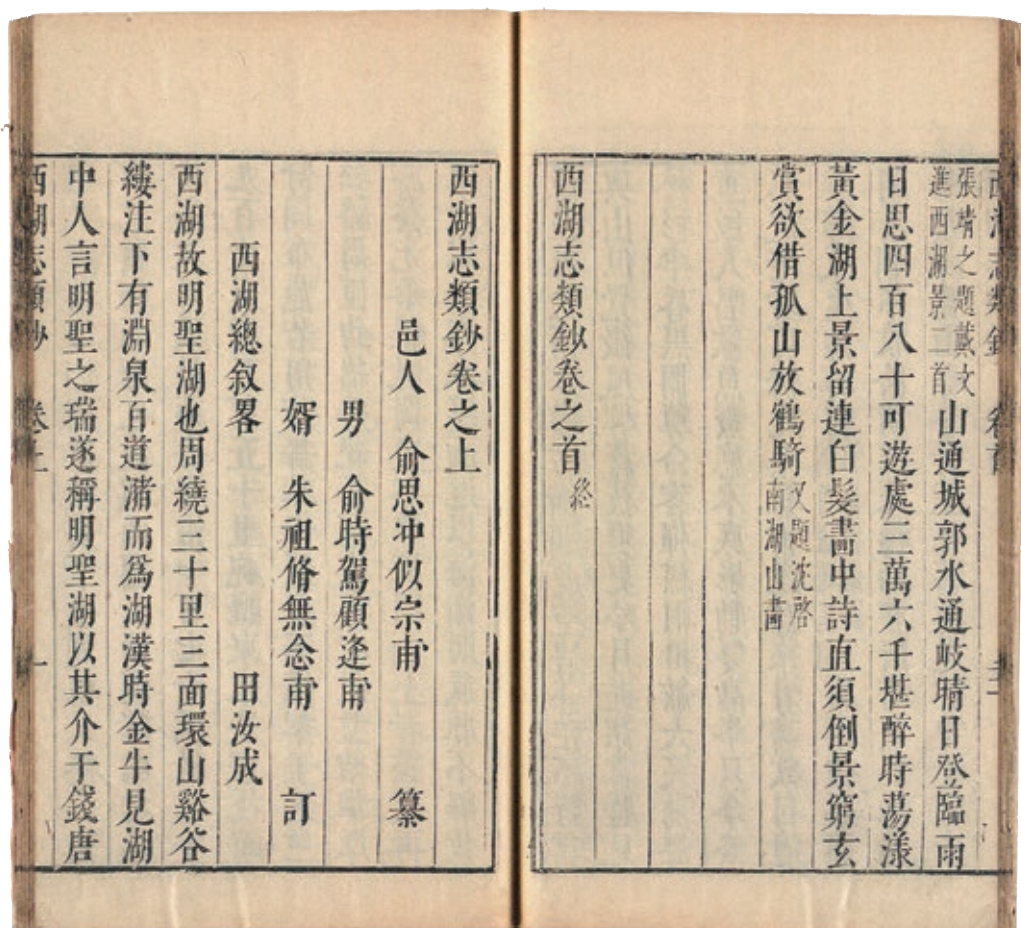 西湖志類鈔 卷首
張靖之題戴文
進西湖景二首
山通城郭水通岐晴日登臨雨
日思四百八十可遊處三萬六千堪醉時蕩漾
黃金湖上景留連白髮畵中詩直須倒景窮玄
賞欲借孤山放鶴騎
又題沈啓
南湖山畵
西湖志類鈔卷之首
終
西湖志類鈔卷之上
邑人 俞思冲似宗甫 纂
男 俞時駕顧逢甫
婿 朱祖脩無念甫 訂
西湖總叙畧 田汝成
西湖故明聖湖也周繞三十里三面環山谿谷
縷注下有淵泉百道瀦而爲湖漢時金牛見湖
中人言明聖之瑞遂稱明聖湖以其介于錢唐
西湖志類鈔 卷之上 一